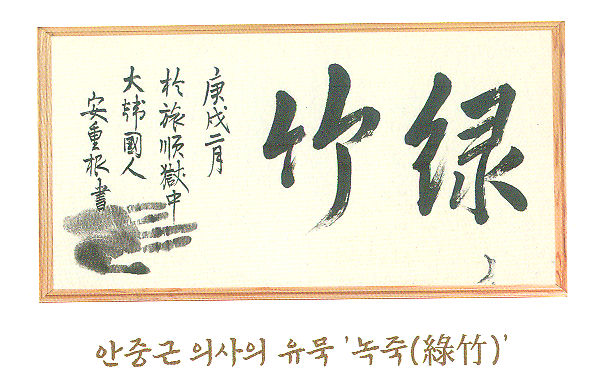 綠竹
庚戌二月
於旅順獄中
大韓國人
安重根書
안중근 의사의 유묵 '녹죽(綠竹)'